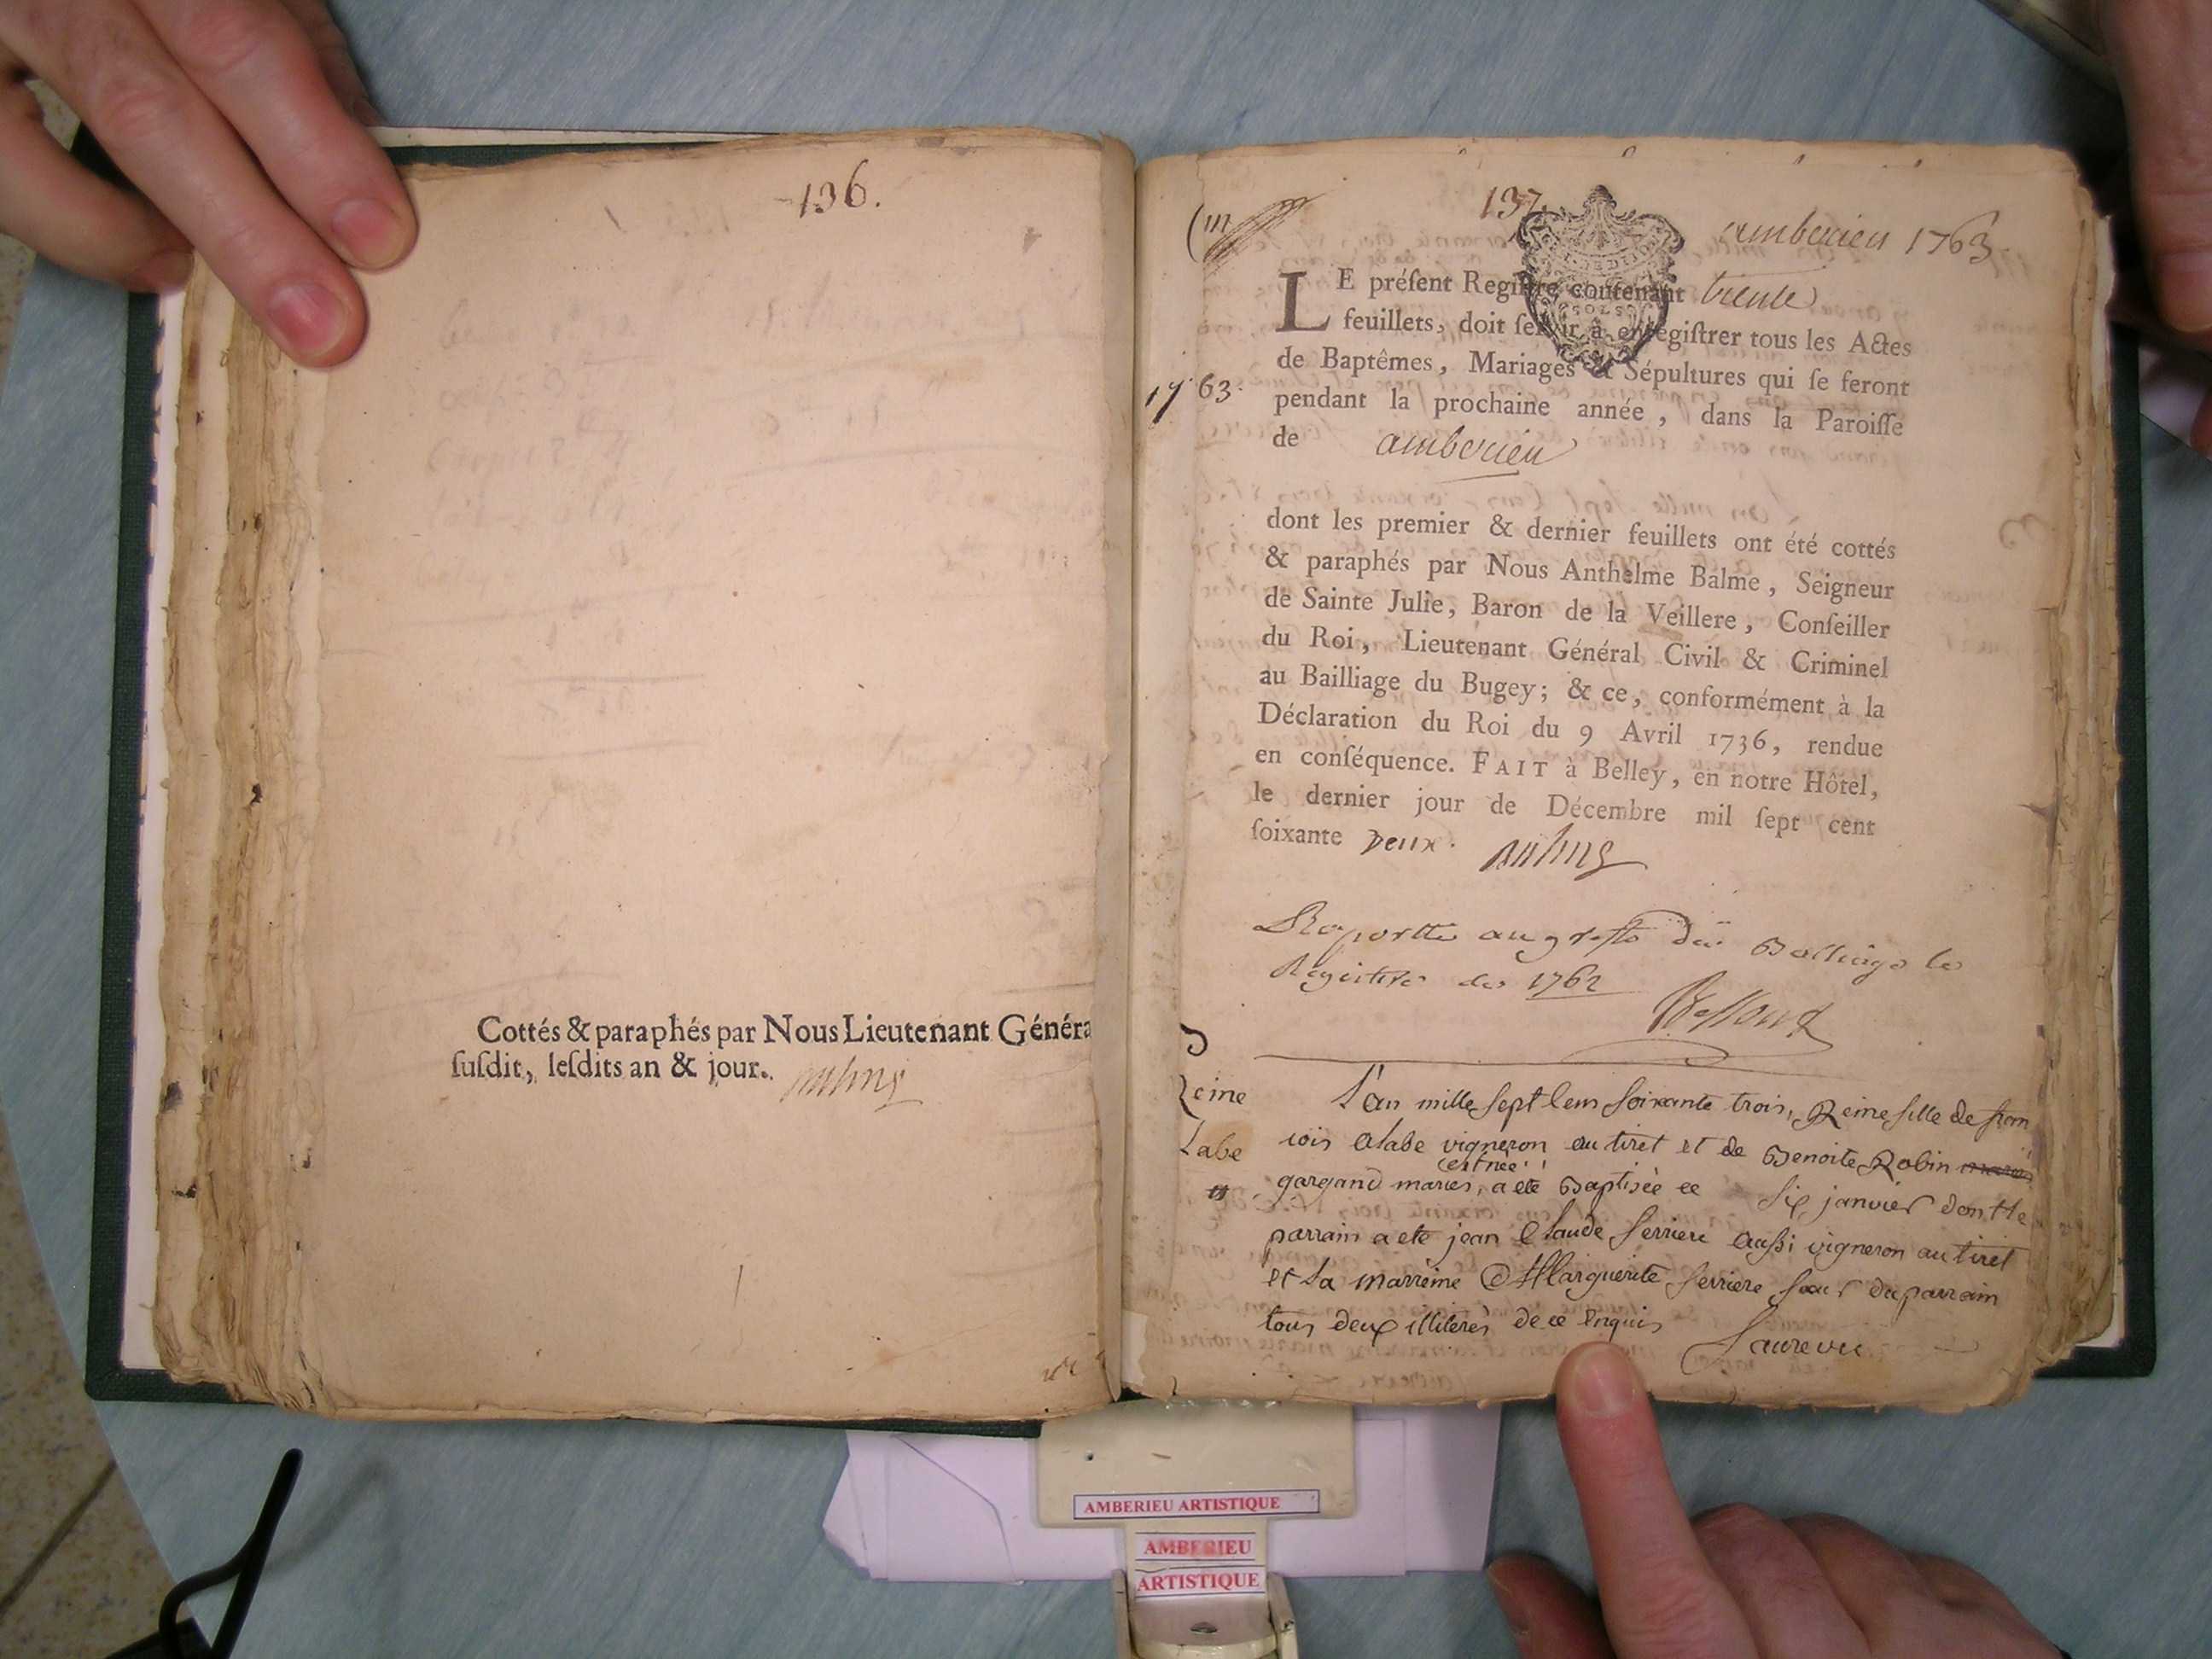 136.
Cottés & paraphés par Nous Lieutenant Généra
ſuſdit, leſdits an & jour.
137.
amberieu 1763
LE préſent Regiſtre contenant trente
feuillets, doit ſervir à enregiſtrer tous les Actes
de Baptêmes, Mariages & Sépultures qui ſe feront
1763.
pendant la prochaine année, dans la Paroiſſe
de amberieu
dont les premier & dernier feuillets ont été cottés
& paraphés par Nous Anthelme Balme, Seigneur
de Sainte Julie, Baron de la Veillere, Conſeiller
du Roi, Lieutenant Général Civil & Criminel
au Bailliage du Bugey; & ce, conformément à la
Déclaration du Roi du 9 Avril 1736, rendue
en conſéquence. FAIT à Belley, en notre Hôtel,
le dernier jour de Décembre mil ſept cent
ſoixante deux.
Raportté au greffe du Balliage le
Registre de 1762
Reine
Labe
L'an mille sept Cens soixante trois, Reine fille de fran
cois Alabe vigneron au tiret et de Benoite Robin
gargand mariés, est née a eté Baptisée ce six janvier dont le
parrain a eté jean Claude serriere aussi vigneron au tiret
et La marreine Marguerite serriere soeur du parrain
tous deux illiterés de ce Enquis
AMBERIEU ARTISTIQUE
AMBERIEU
ARTISTIQUE